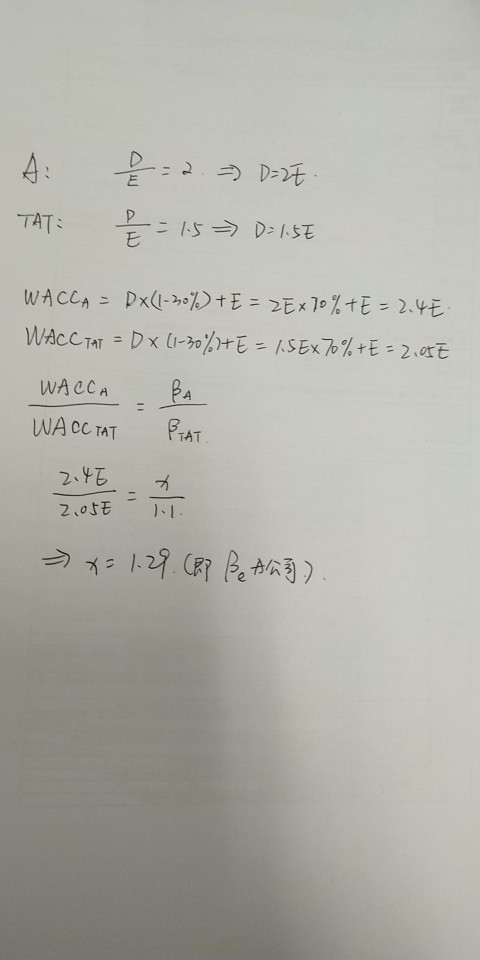 A: D/E = 2 ⇒ D=2E.
TAT: D/E = 1.5 ⇒ D=1.5E
WACC_A = D×(1-30%)+E = 2E×70%+E = 2.4E.
WACC_TAT = D×(1-30%)+E = 1.5E×70%+E = 2.05E
WACC_A/WACC_TAT = β_A/β_TAT.
2.4E/2.05E = x/1.1.
⇒ x = 1.29.(即 β_e A公司.).